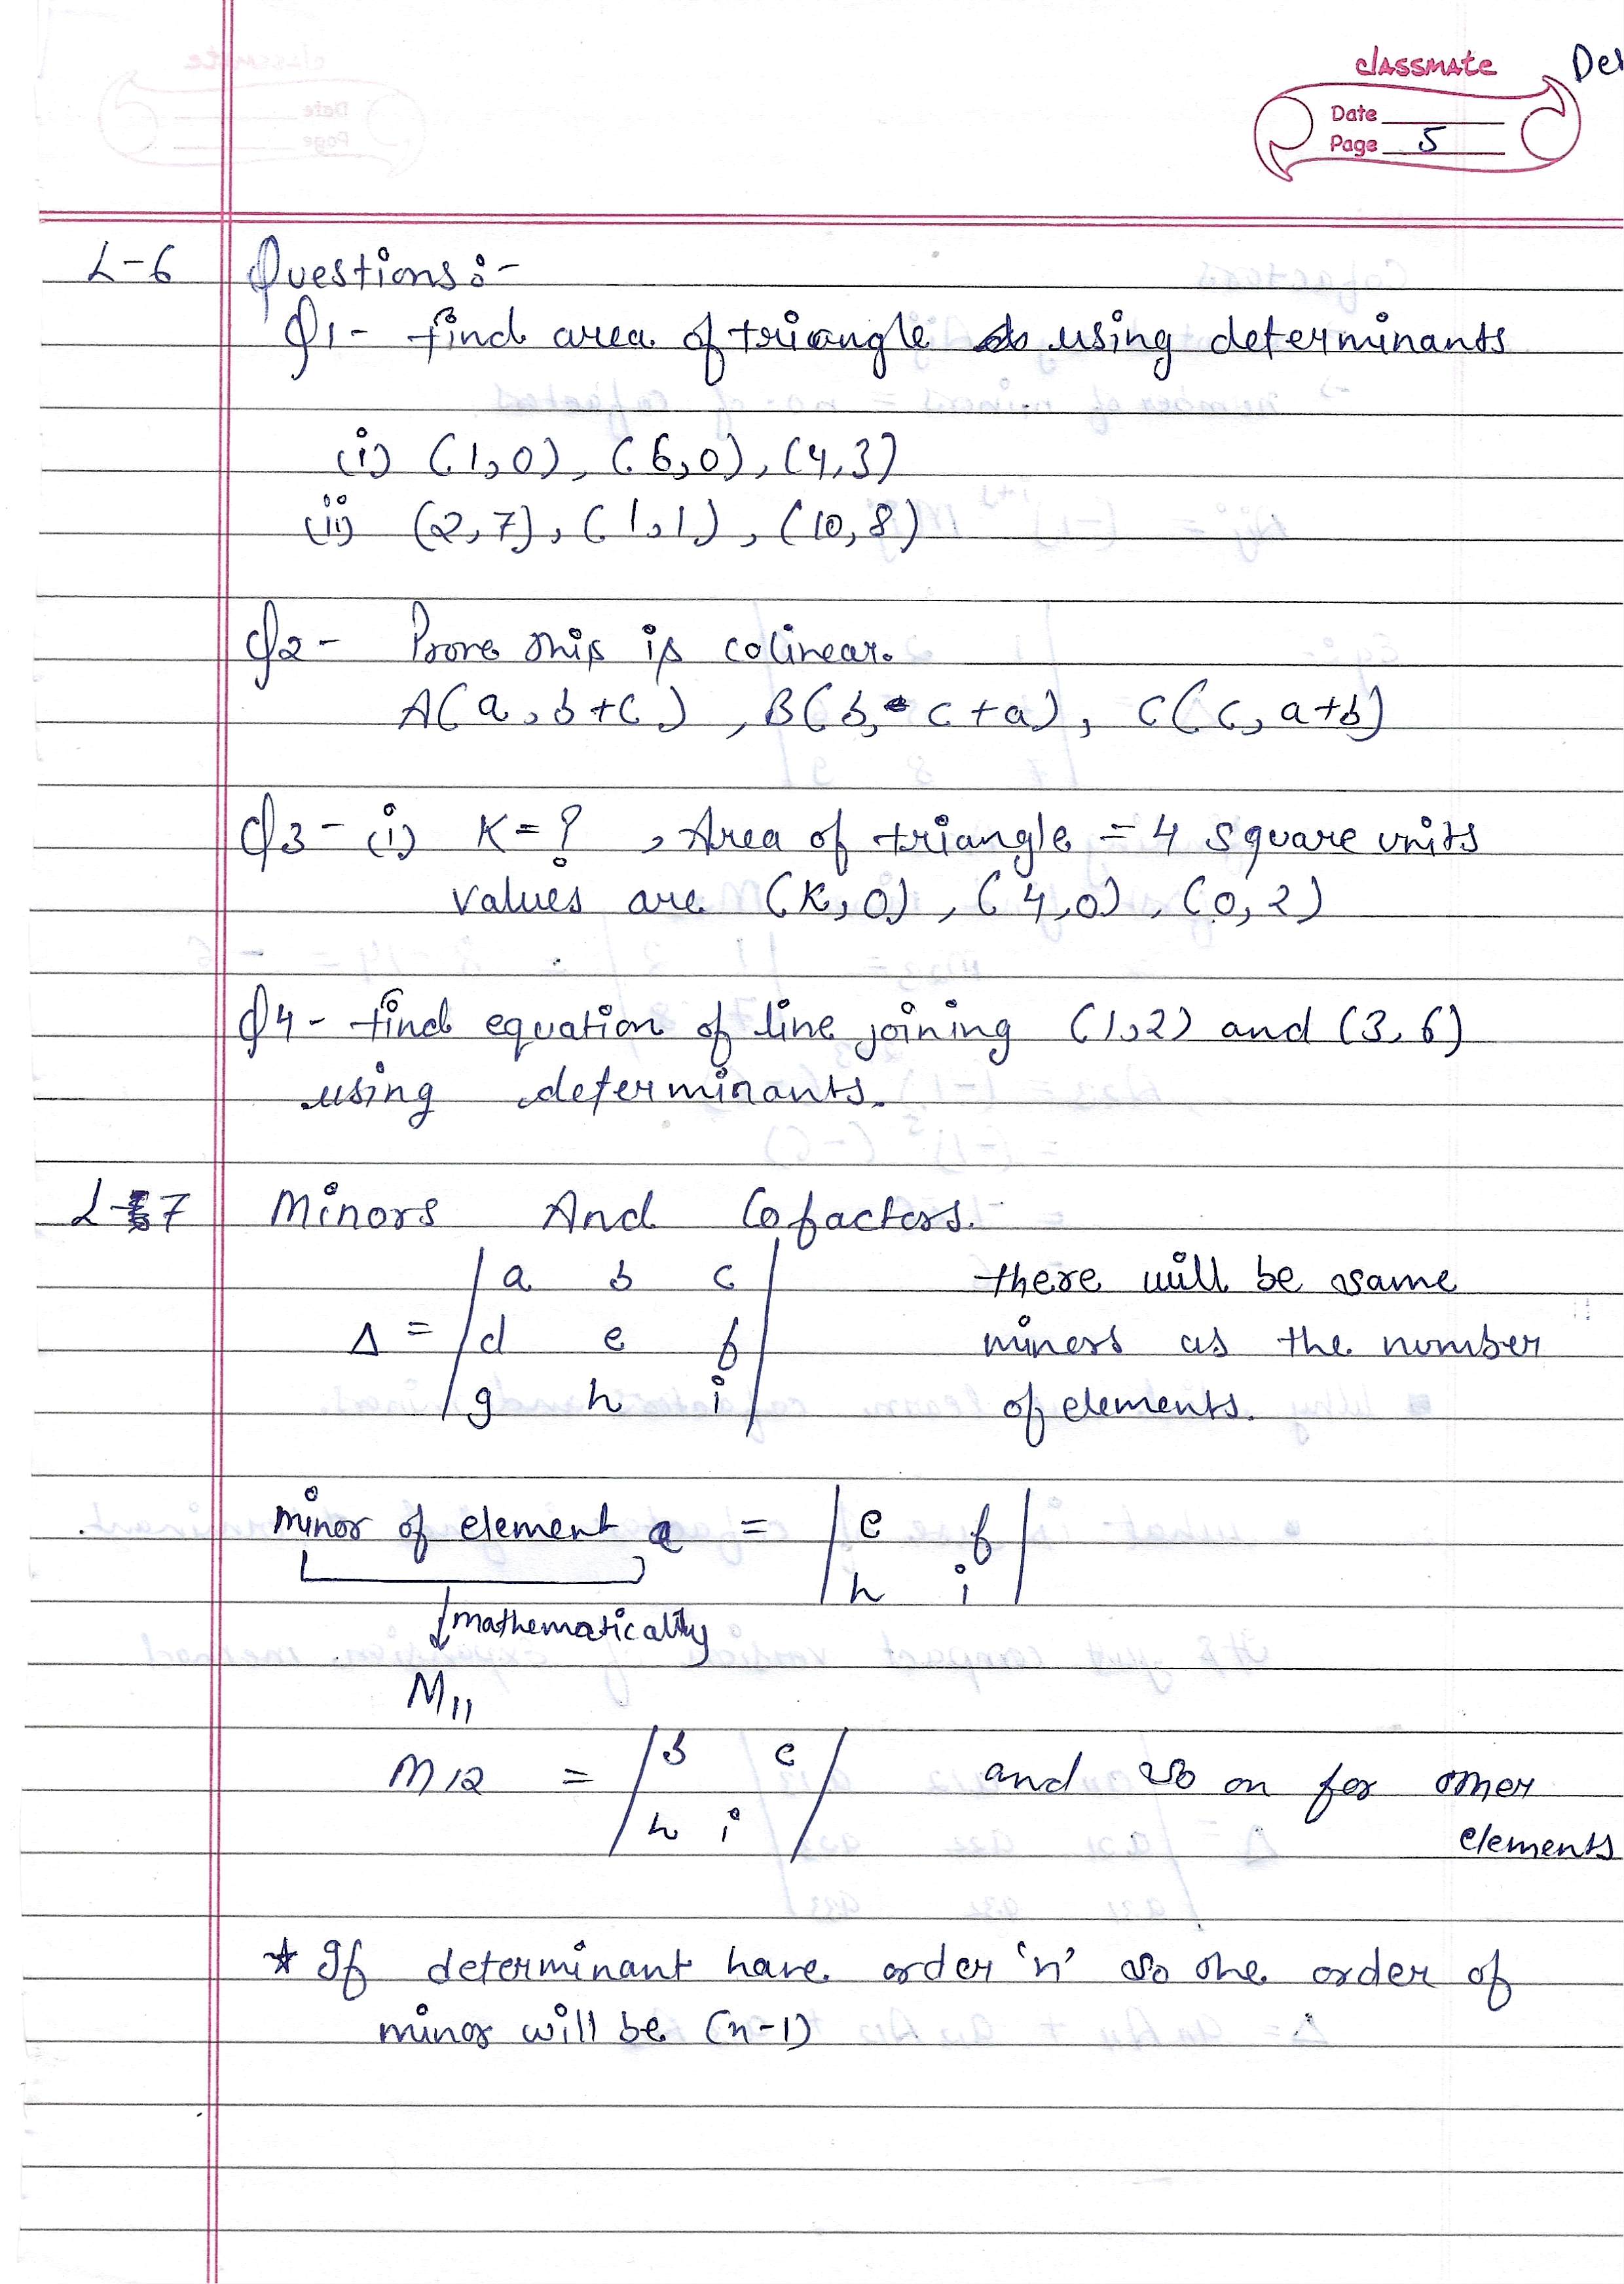 classmate
De
Date
Page 5
L-6 Questions:-
Q1- find area of triangle using determinants
(i) (1,0), (6,0), (4,3)
(ii) (2,7), (1,1), (10,8)
Q2- Prove this is colinear.
A(a, b+c), B(b, c+a), C(c, a+b)
Q3- (i) K=? , Area of triangle = 4 square units
values are (K,0), (4,0), (0,2)
Q4- find equation of line joining (1,2) and (3,6)
using determinants.
L-7 Minors And Cofactors.
| a b c | there will be same
Δ = | d e f | miners as the number
| g h i | of elements.
minor of element a = | e f |
| h i |
↓ mathematically
M11
M12 = | b c | and so on for other
| h i | elements
* If determinant have order 'n' so the order of
minor will be (n-1)